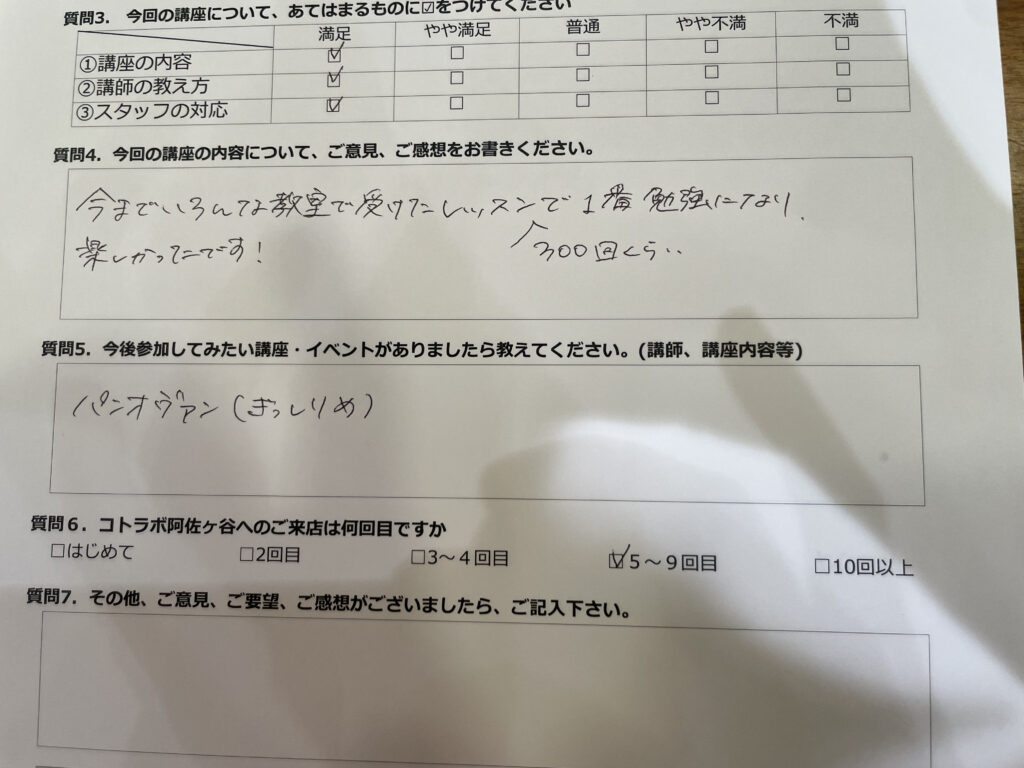 質問3．今回の講座について、あてはまるものに☑をつけてください
満足 やや満足 普通 やや不満 不満
①講座の内容 ☑ ☐ ☐ ☐ ☐
②講師の教え方 ☑ ☐ ☐ ☐ ☐
③スタッフの対応 ☑ ☐ ☐ ☐ ☐
質問4．今回の講座の内容について、ご意見、ご感想をお書きください。
今までいろんな教室で受けたレッスンで1番勉強になり、
300回くらい..
楽しかったです!
質問5．今後参加してみたい講座・イベントがありましたら教えてください。(講師、講座内容等)
パンオヴァン(ぎっしりめ)
質問６．コトラボ阿佐ヶ谷へのご来店は何回目ですか
☐はじめて ☐2回目 ☐3～４回目 ☑５～９回目 ☐10回以上
質問7．その他、ご意見、ご要望、ご感想がございましたら、ご記入下さい。